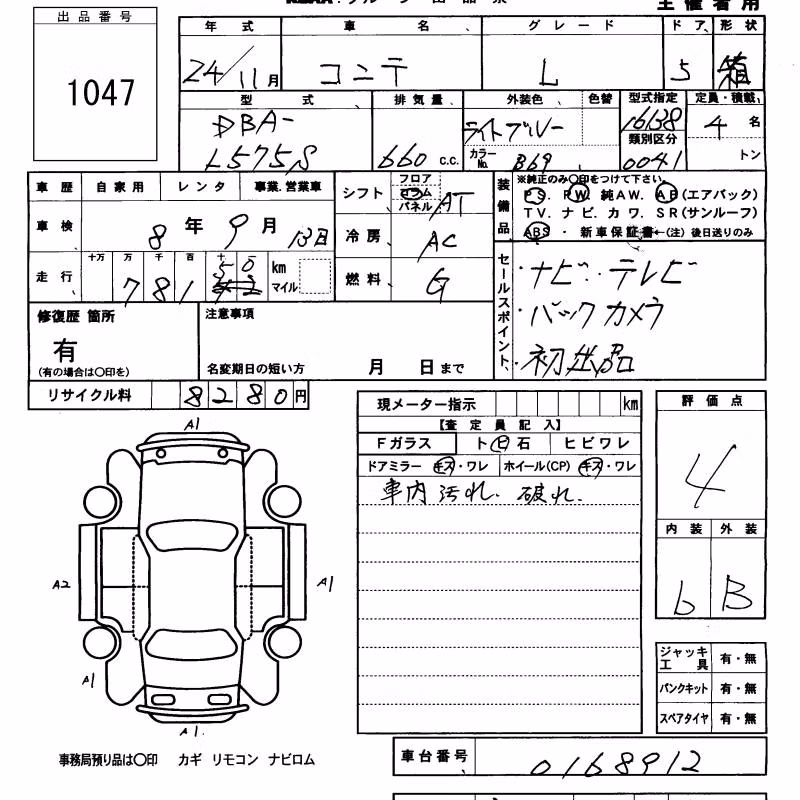 主催者用
出品番号
1047
年式 車名 グレード ドア 形状
24/11月 コンテ L 5 箱
型式 排気量 外装色 色替 型式指定 定員・積載
DBA-
L575S 660 c.c. ライトブルー 16138 4名
カラーNo. B69 類別区分 0041 トン
車歴 自家用 レンタ 事業.営業車
車検 8年9月13日
走行 十万 万 千 百 十 km マイル
7 8 1 5 0
シフト フロア コラム パネル AT
冷房 AC
燃料 G
装備品 ※純正のみ○印をつけて下さい。
PS. PW. 純AW. AB(エアバック)
TV. ナビ. カワ. SR(サンルーフ)
ABS ・ 新車保証書←(注) 後日送りのみ
セールスポイント
・ナビ・テレビ
・バックカメラ
・初出品
修復歴 箇所
有
(有の場合は○印を)
注意事項
名変期日の短い方 月 日まで
リサイクル料 8280円
現メーター指示 km
【査定員記入】
Fガラス ト ビ 石 ヒビワレ
ドアミラー キズ・ワレ ホイール(CP) キズ・ワレ
車内汚れ. 破れ.
評価点
4
内装 外装
b B
A1
A2
A1
A1
A1.
ジャッキ工具 有・無
パンクキット 有・無
スペアタイヤ 有・無
事務局預り品は○印 カギ リモコン ナビロム
車台番号 0168912